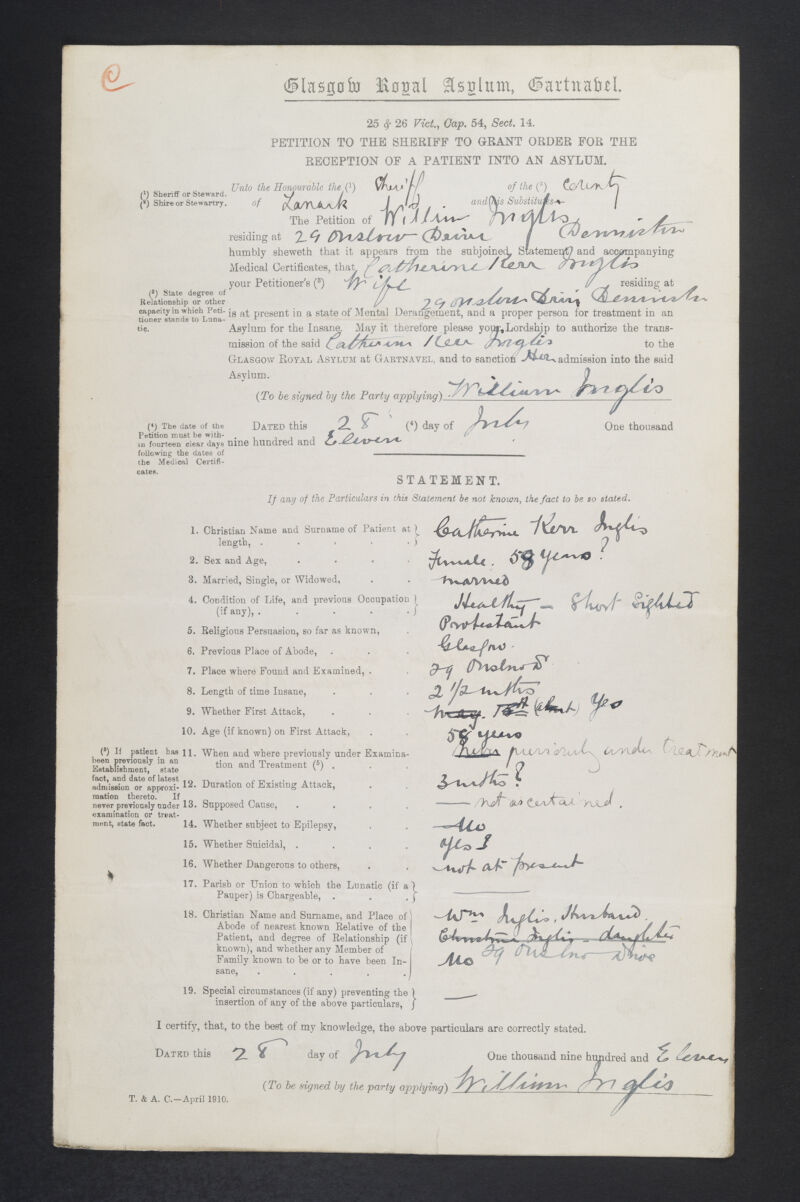 C
Glasgow Royal Asylum, Gartnavel.
25 & 26 Vict., Cap. 54, Sect. 14.
PETITION TO THE SHERIFF TO GRANT ORDER FOR THE
RECEPTION OF A PATIENT INTO AN ASYLUM.
(1) Sheriff or Steward.
(2) Shire or Stewartry.
Unto the Honourable the (1) Sheriff of the (2) County
of Lanark and his Substitutes
The Petition of William Inglis
residing at 29 Onslow Drive Dennistoun
humbly sheweth that it appears from the subjoined Statement and accompanying
Medical Certificates, that Catherine Kerr Inglis
your Petitioner's (3) Wife residing at
29 Onslow Drive Dennistoun
(3) State degree of
Relationship or other
capacity in which Peti-
tioner stands to Luna-
tic.
is at present in a state of Mental Derangement, and a proper person for treatment in an
Asylum for the Insane. May it therefore please your Lordship to authorize the trans-
mission of the said Catherine Kerr Inglis to the
GLASGOW ROYAL ASYLUM AT GARTNAVEL, and to sanction Her admission into the said
Asylum.
(To be signed by the Party applying) William Inglis
(4) The date of the
Petition must be with-
in fourteen clear days
following the dates of
the Medical Certifi-
cates.
DATED this 28 (4) day of July One thousand
nine hundred and Eleven
STATEMENT.
If any of the Particulars in this Statement be not known, the fact to be so stated.
1. Christian Name and Surname of Patient at
length, . . . . . Catherine Kerr Inglis
2. Sex and Age, . . . . Female. 58 years?
3. Married, Single, or Widowed, . . married
4. Condition of Life, and previous Occupation
(if any), . . . . . Healthy – Short Sighted
5. Religious Persuasion, so far as known, . Protestant
6. Previous Place of Abode, . . . Glasgow.
7. Place where Found and Examined, . . 29 Onslow Dr
8. Length of time Insane, . . . 2 1/2 mths
9. Whether First Attack, . . . May. (about) Yes
10. Age (if known) on First Attack, . . 58 years
(5) If patient has
been previously in an
Establishment, state
fact, and date of latest
admission or approxi-
mation thereto. If
never previously under
examination or treat-
ment, state fact.
11. When and where previously under Examina-
tion and Treatment (5) . . . previously under treatment
12. Duration of Existing Attack, . . 3 mths?
13. Supposed Cause, . . . . — not ascertained.
14. Whether subject to Epilepsy, . . — No
15. Whether Suicidal, . . . . Yes
16. Whether Dangerous to others, . . not at present
17. Parish or Union to which the Lunatic (if a
Pauper) is Chargeable, . . . —
18. Christian Name and Surname, and Place of
Abode of nearest known Relative of the
Patient, and degree of Relationship (if
known), and whether any Member of
Family known to be or to have been In-
sane, . . . . .
Wm Inglis. Husband.
Christina Inglis – daughter
29 Onslow Drive
No
19. Special circumstances (if any) preventing the
insertion of any of the above particulars, —
I certify, that, to the best of my knowledge, the above particulars are correctly stated.
DATED this 28 day of July One thousand nine hundred and Eleven
(To be signed by the party applying) William Inglis
T. & A. C.—April 1910.